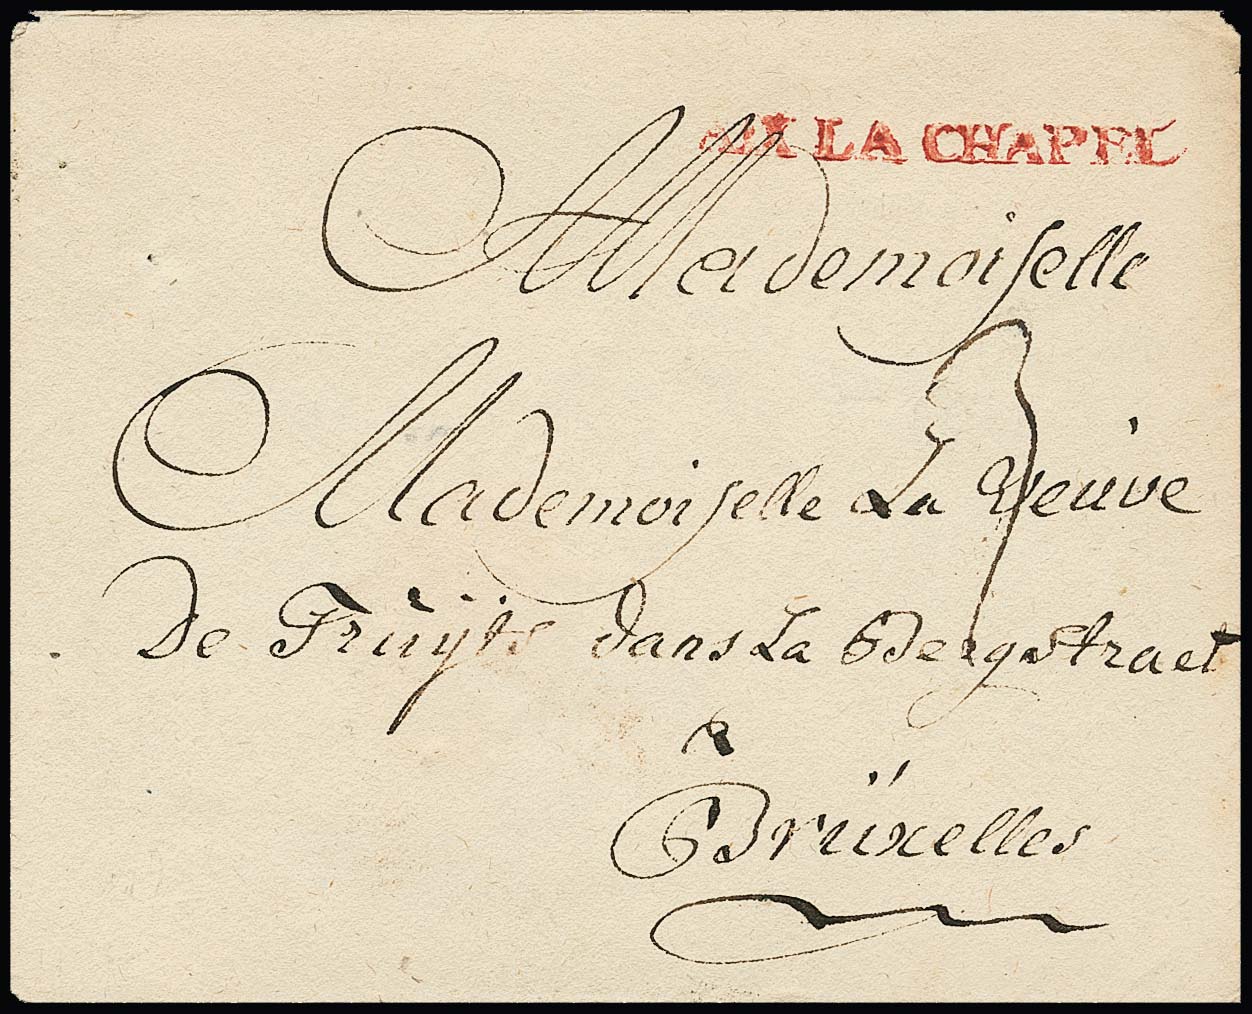 AIX LA CHAPEL
Mademoiselle
3
Mademoiselle La Veuve
De Fruÿts dans La Bergstraet
a
Brüxelles